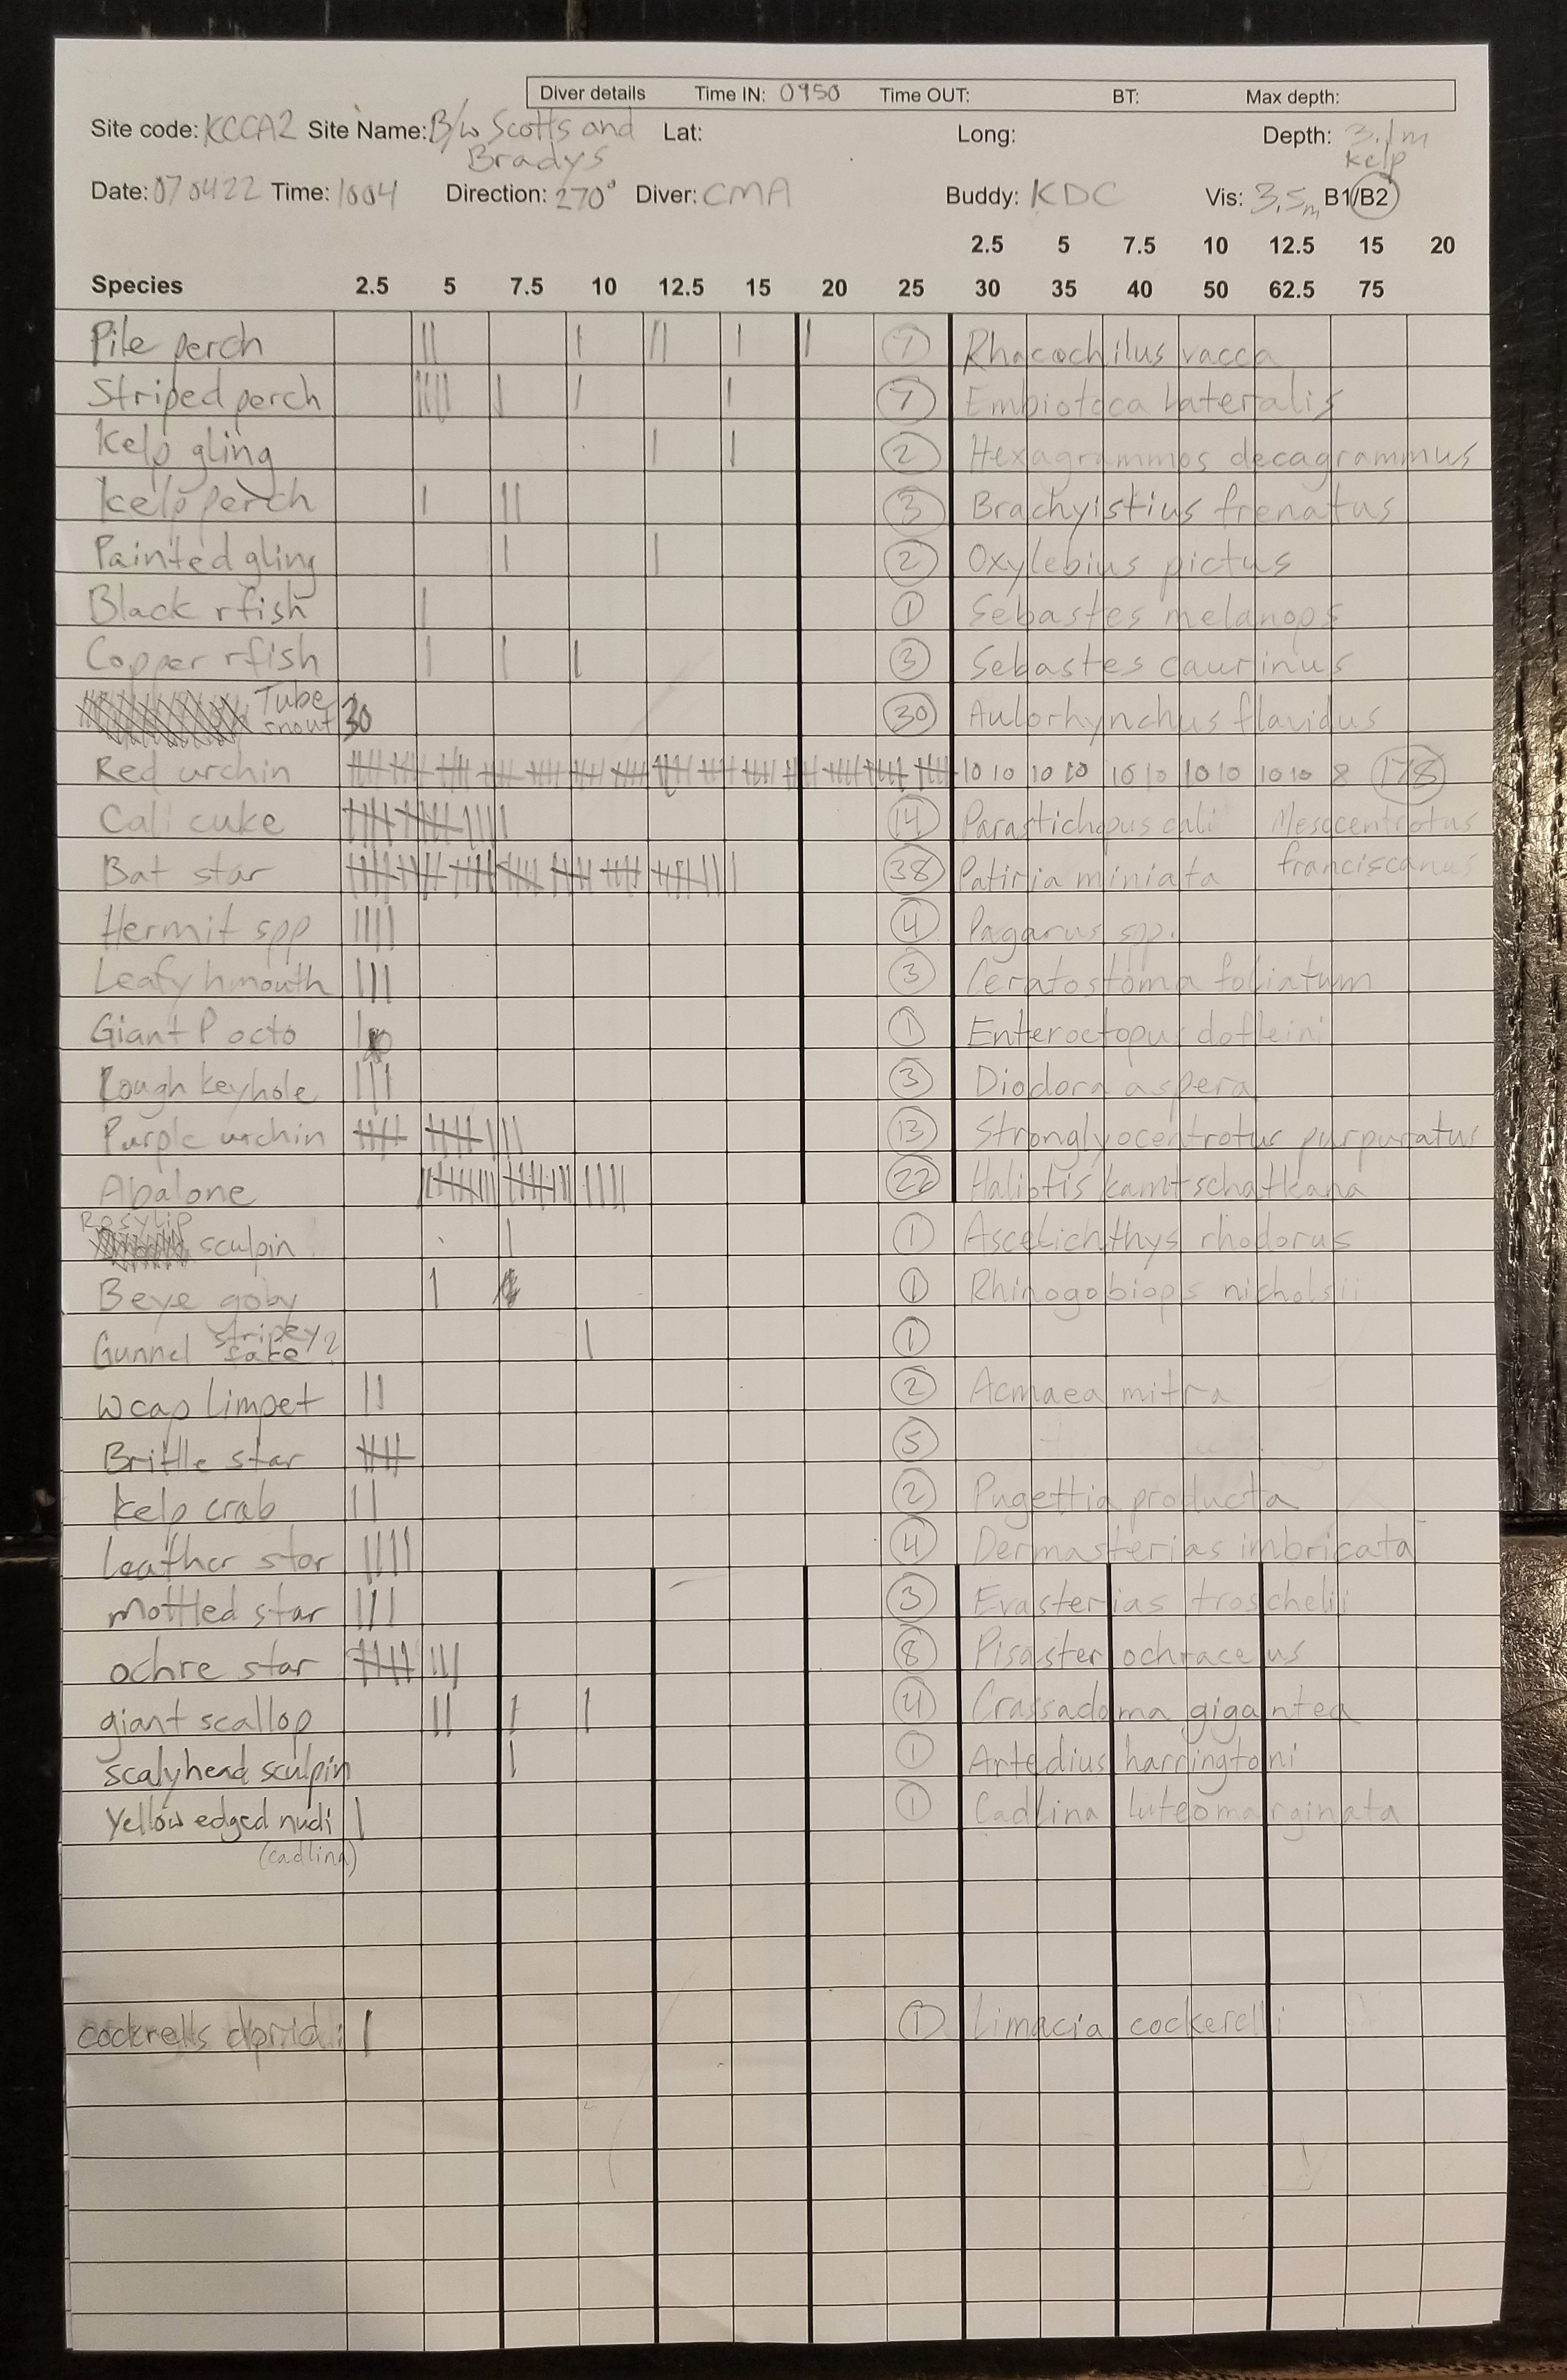 Diver details Time IN: 0950 Time OUT: BT: Max depth:
Site code: KCCA2 Site Name: B/w Scotts and Bradys Lat: Long: Depth: 3.1m kelp
Date: 070422 Time: 1004 Direction: 270° Diver: CMA Buddy: KDC Vis: 3.5m B1/B2
2.5 5 7.5 10 12.5 15 20
Species 2.5 5 7.5 10 12.5 15 20 25 30 35 40 50 62.5 75
Pile perch || | || | | 7 Rhacochilus vacca
Striped perch |||| | | | 7 Embiotoca lateralis
Kelp gling | | 2 Hexagrammos decagrammus
Kelp perch | || 3 Brachyistius frenatus
Painted gling | | 2 Oxylebius pictus
Black rfish | 1 Sebastes melanops
Copper rfish | | | 3 Sebastes caurinus
Tube snout 30 30 Aulorhynchus flavidus
Red urchin 10 10 10 10 10 10 10 10 10 10 8 178
Cali cuke 14 Parastichopus cali Mesocentrotus
Bat star 38 Patiria miniata franciscanus
Hermit spp |||| 4 Pagarus spp.
Leafy hmouth ||| 3 Ceratostoma foliatum
Giant P octo | 1 Enteroctopus dofleini
Rough keyhole ||| 3 Diodora aspera
Purple urchin 13 Stronglyocentrotus purpuratus
Abalone 22 Haliotis kamtschatkana
Rosylip sculpin | 1 Ascelichthys rhodorus
Beye goby | 1 Rhinogobiops nicholsii
Gunnel stripey face? | 1
wcap limpet || 2 Acmaea mitra
Brittle star 5
Kelp crab || 2 Pugettia producta
leather star |||| 4 Dermasterias imbricata
mottled star ||| 3 Evasterias troschelii
ochre star 8 Pisaster ochraceus
giant scallop || | | 4 Crassadoma gigantea
scalyhead sculpin | 1 Artedius harringtoni
Yellow edged nudi | 1 Cadlina luteomarginata
(cadlina)
cockrells dorid | 1 Limacia cockerelli